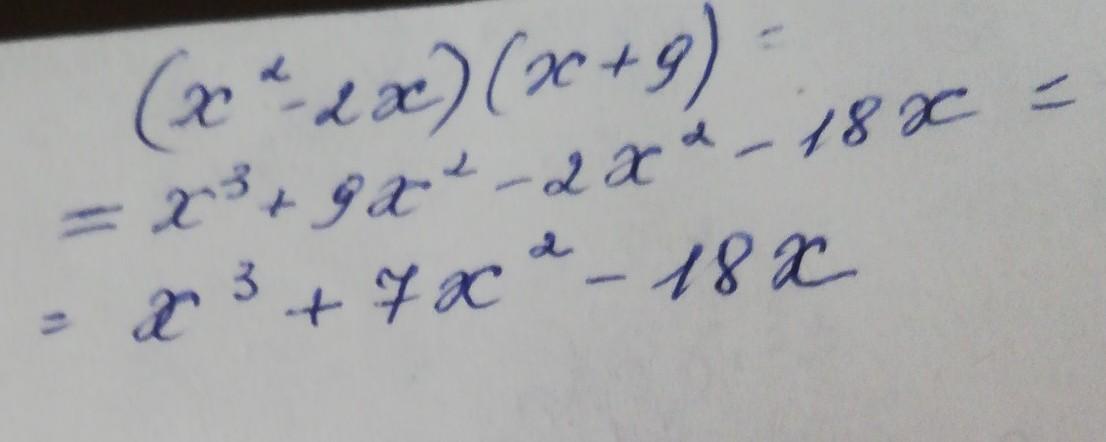 (x² - 2x)(x + 9) =
= x³ + 9x² - 2x² - 18x =
= x³ + 7x² - 18x